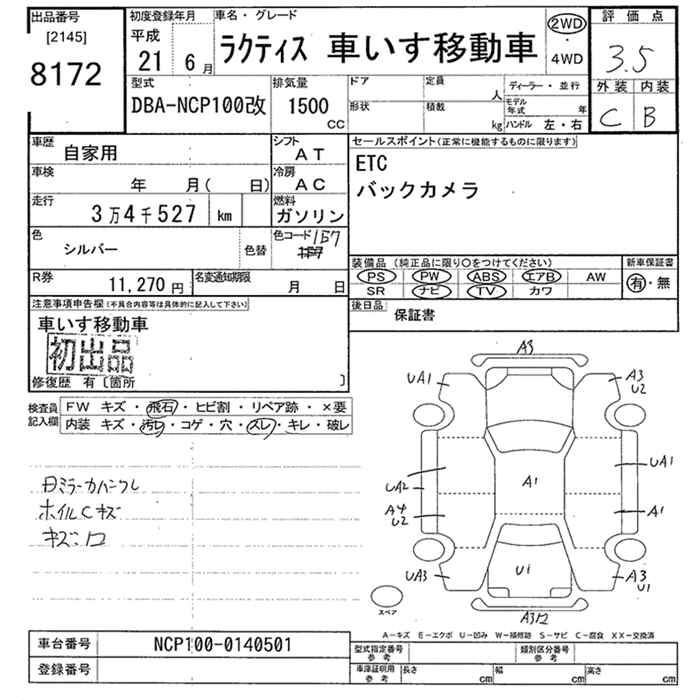 出品番号
[2145]
8172
初度登録年月
平成
21 6月
車名・グレード
ラクティス 車いす移動車
2WD
・
4WD
評価点
3.5
外装 内装
C B
型式
DBA-NCP100改
排気量
1500
CC
ドア 定員 人
形状 積載 kg
ディーラー・並行
モデル年式 年
ハンドル 左・右
車歴 自家用
シフト AT
車検 年 月( 日)
冷房 AC
走行 3万4千527 km
燃料 ガソリン
色 シルバー 色替
色コード 1E7
R券 11,270円
名変通知期限 月 日
セールスポイント(正常に機能するものに限ります)
ETC
バックカメラ
装備品 (純正品に限り〇をつけてください)
PS PW ABS エアB AW
SR ナビ TV カワ
新車保証書
有・無
後日品 保証書
注意事項申告欄(不具合内容等は具体的に記入して下さい)
車いす移動車
初出品
修復歴 有〔箇所 〕
検査員記入欄
FW キズ・飛石・ヒビ割・リペア跡・×要
内装 キズ・汚レ・コゲ・穴・スレ・キレ・破レ
ホイルCキズ
A3
UA1
A3
U2
UA1
UA2
A1
A4
U2
A1
UA3
U1
A3
U1
スペア
A312
A-キズ E-エクボ U-凹み W-補修跡 S-サビ C-腐食 XX-交換済
車台番号 NCP100-0140501
登録番号
型式指定番号 参考
類別区分番号 参考
車庫証明用 参考
長さ cm
幅 cm
高さ cm